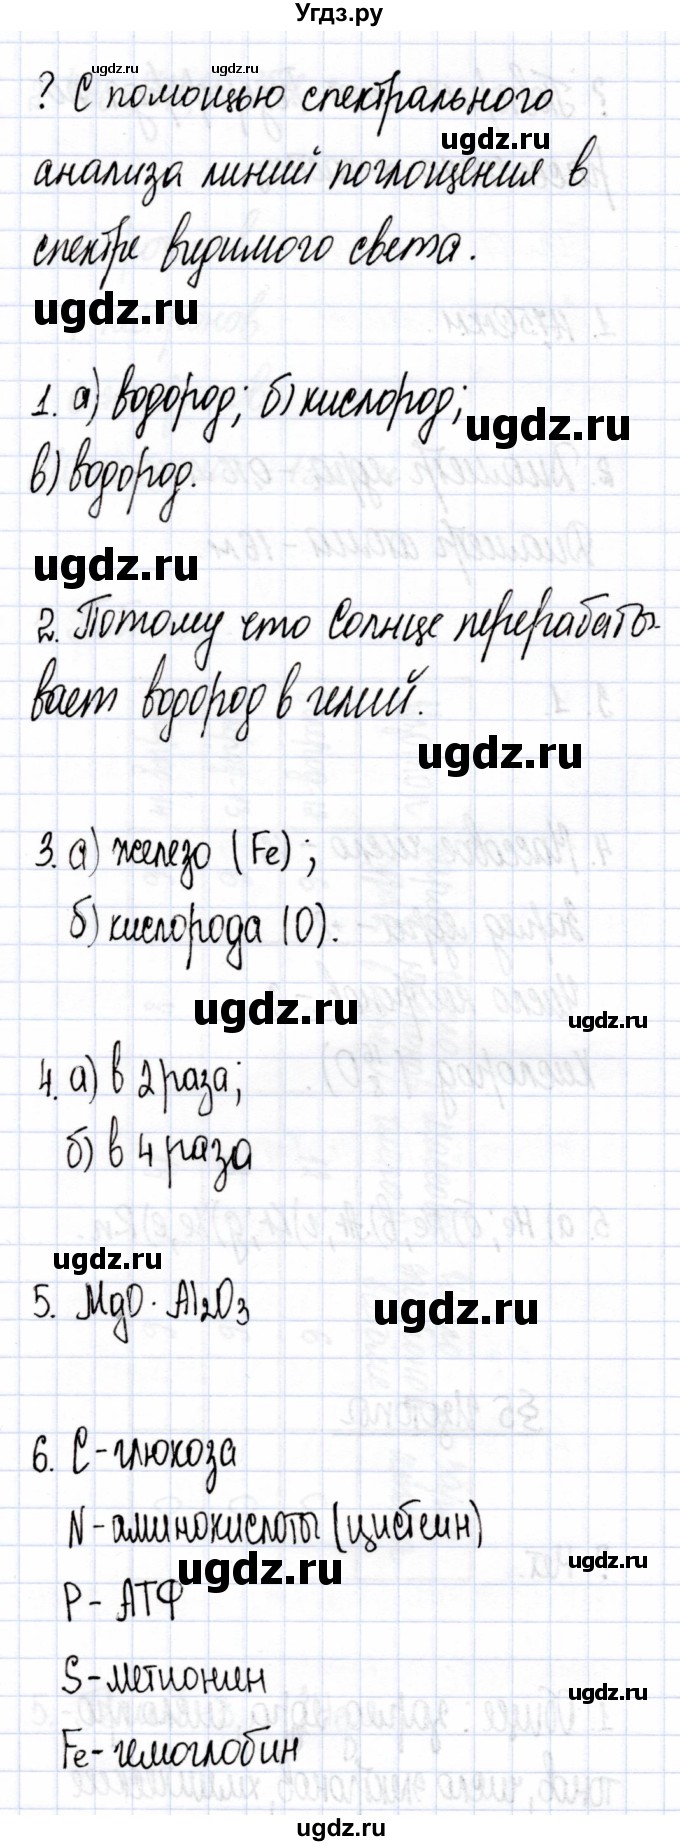 Угдз.ру
ugdz.ru ugdz.ru
? С помощью спектрального
ugdz.ru
анализа линий поглощения в
спектре видимого света.
ugdz.ru
1. а) водород; б) кислород;
ugdz.ru
в) водород.
ugdz.ru
2. Потому что Солнце перерабаты-
вает водород в гелий.
ugdz.ru
3. а) железо (Fe);
б) кислорода (O).
ugdz.ru
ugdz.ru
4. а) в 2 раза;
б) в 4 раза
ugdz.ru
5. MgO · Al2O3
ugdz.ru
6. C - глюкоза
N - аминокислоты (цистеин)
ugdz.ru
ugdz.ru
P - АТФ
S - метионин
ugdz.ru
Fe - гемоглобин
ugdz.ru